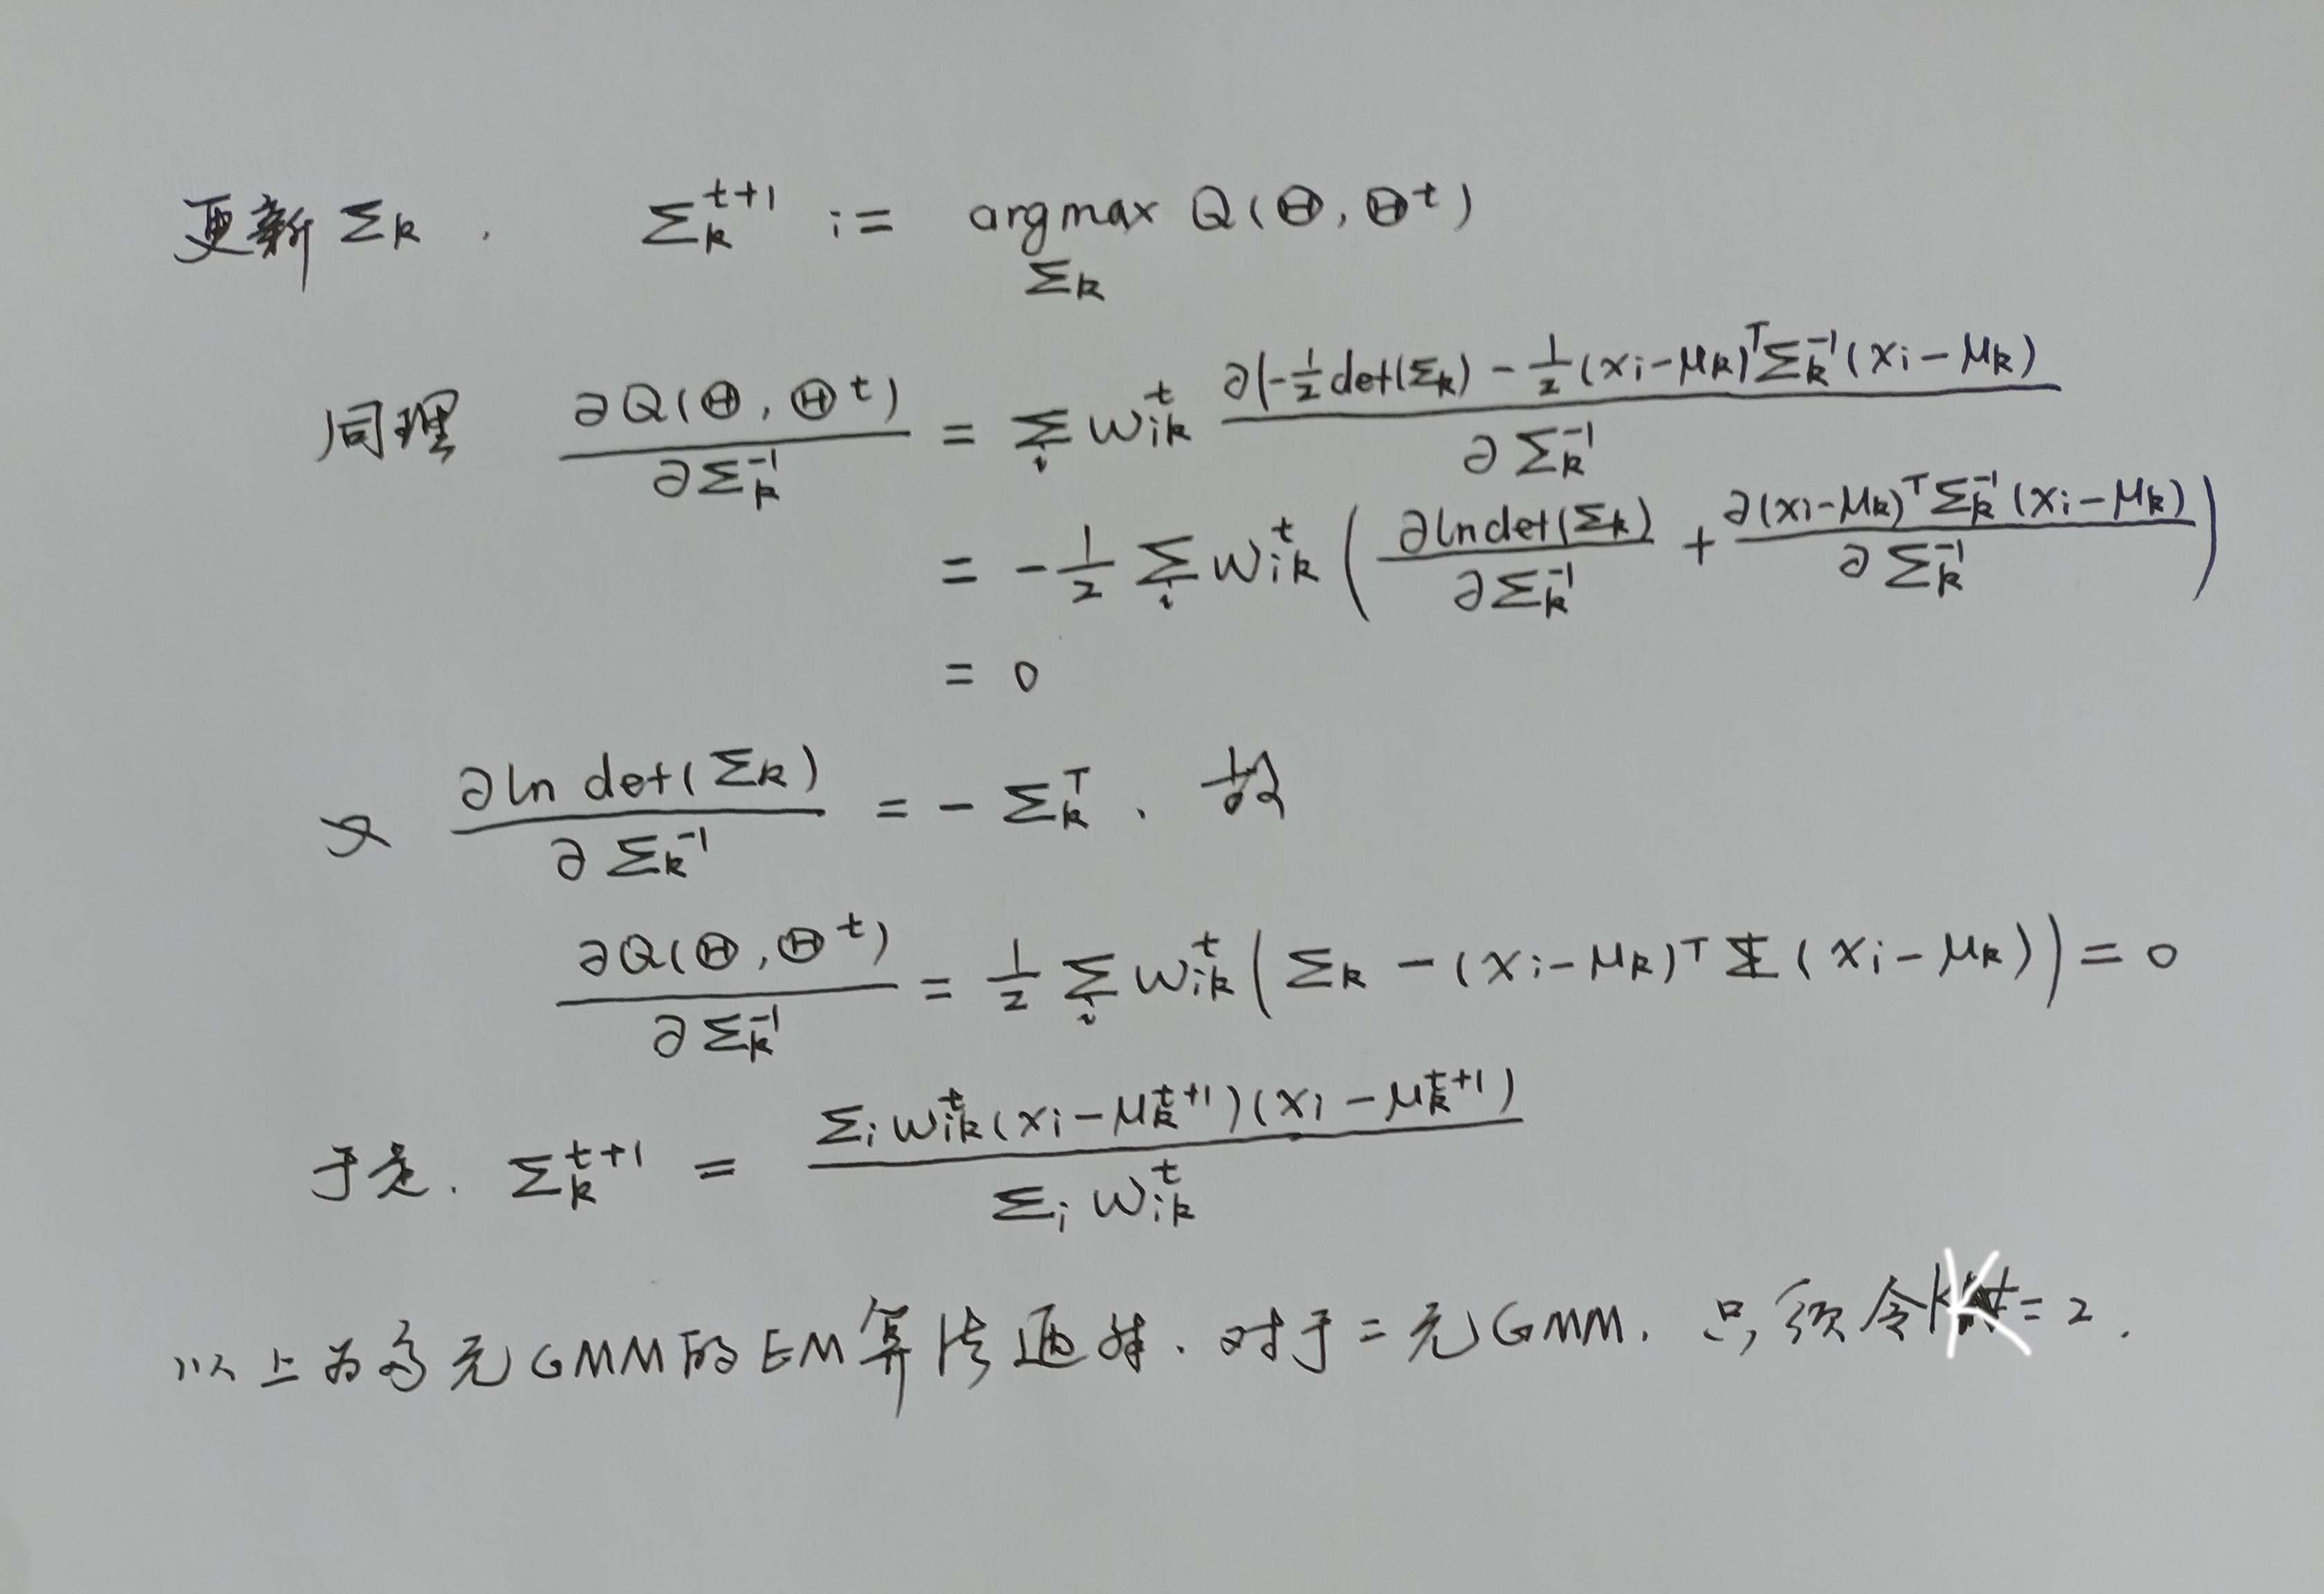 更新 Σₖ. Σₖᵗ⁺¹ := argmax Q(Θ, Θᵗ)
Σₖ
同理 ∂Q(Θ, Θᵗ)/∂Σₖ⁻¹ = Σᵢ wᵢₖᵗ ∂(-½det(Σₖ) - ½(xᵢ-μₖ)ᵀΣₖ⁻¹(xᵢ-μₖ)/∂Σₖ⁻¹
= -½ Σᵢ wᵢₖᵗ (∂ln det(Σₖ)/∂Σₖ⁻¹ + ∂(xᵢ-μₖ)ᵀΣₖ⁻¹(xᵢ-μₖ)/∂Σₖ⁻¹)
= 0
又 ∂ln det(Σₖ)/∂Σₖ⁻¹ = -Σₖᵀ. 故
∂Q(Θ, Θᵗ)/∂Σₖ⁻¹ = ½ Σᵢ wᵢₖᵗ (Σₖ - (xᵢ-μₖ)ᵀ (xᵢ-μₖ)) = 0
于是. Σₖᵗ⁺¹ = Σᵢ wᵢₖᵗ(xᵢ-μₖᵗ⁺¹)(xᵢ-μₖᵗ⁺¹)/Σᵢ wᵢₖᵗ
以上为多元GMM的EM算法. 对于二元GMM. 只须令K=2.